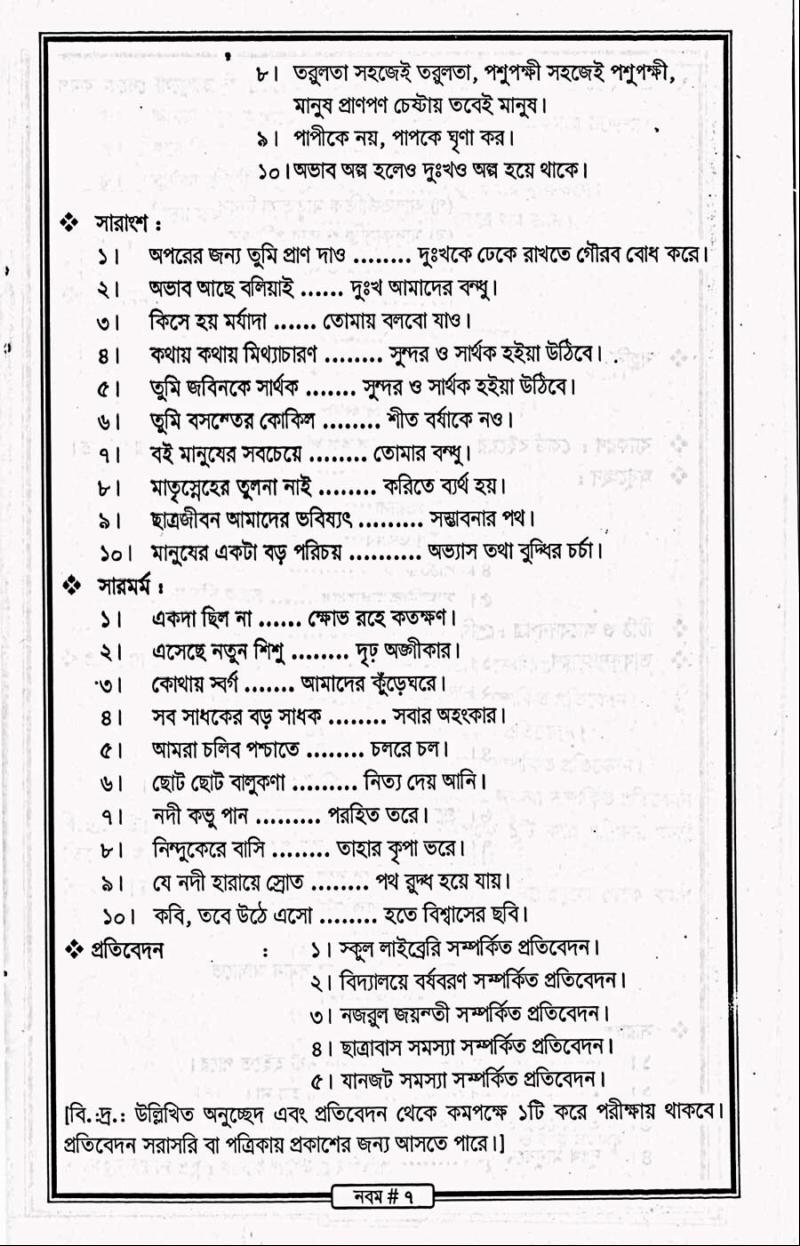 ৮। তরুলতা সহজেই তরুলতা, পশুপক্ষী সহজেই পশুপক্ষী,
মানুষ প্রাণপণ চেষ্টায় তবেই মানুষ।
৯। পাপীকে নয়, পাপকে ঘৃণা কর।
১০।অভাব অল্প হলেও দুঃখও অল্প হয়ে থাকে।
❖ সারাংশ :
১। অপরের জন্য তুমি প্রাণ দাও ........ দুঃখকে ঢেকে রাখতে গৌরব বোধ করে।
২। অভাব আছে বলিয়াই ...... দুঃখ আমাদের বন্ধু।
৩। কিসে হয় মর্যাদা ...... তোমায় বলবো যাও।
৪। কথায় কথায় মিথ্যাচারণ ........ সুন্দর ও সার্থক হইয়া উঠিবে।
৫। তুমি জবিনকে সার্থক ....... সুন্দর ও সার্থক হইয়া উঠিবে।
৬। তুমি বসন্তের কোকিল ........ শীত বর্ষাকে নও।
৭। বই মানুষের সবচেয়ে ........ তোমার বন্ধু।
৮। মাতৃস্নেহের তুলনা নাই ........ করিতে ব্যর্থ হয়।
৯। ছাত্রজীবন আমাদের ভবিষ্যৎ ......... সম্ভাবনার পথ।
১০। মানুষের একটা বড় পরিচয় .......... অভ্যাস তথা বুদ্ধির চর্চা।
❖ সারমর্ম :
১। একদা ছিল না ...... ক্ষোভ রহে কতক্ষণ।
২। এসেছে নতুন শিশু ........ দৃঢ় অঙ্গীকার।
৩। কোথায় স্বর্গ ....... আমাদের কুঁড়েঘরে।
৪। সব সাধকের বড় সাধক ........ সবার অহংকার।
৫। আমরা চলিব পশ্চাতে ........ চলরে চল।
৬। ছোট ছোট বালুকণা ......... নিত্য দেয় আনি।
৭। নদী কভু পান ......... পরহিত তরে।
৮। নিন্দুকেরে বাসি ........ তাহার কৃপা ভরে।
৯। যে নদী হারায়ে স্রোত ........ পথ রুদ্ধ হয়ে যায়।
১০। কবি, তবে উঠে এসো ........ হতে বিশ্বাসের ছবি।
❖ প্রতিবেদন : ১। স্কুল লাইব্রেরি সম্পর্কিত প্রতিবেদন।
২। বিদ্যালয়ে বর্ষবরণ সম্পর্কিত প্রতিবেদন।
৩। নজরুল জয়ন্তী সম্পর্কিত প্রতিবেদন।
৪। ছাত্রাবাস সমস্যা সম্পর্কিত প্রতিবেদন।
৫। যানজট সমস্যা সম্পর্কিত প্রতিবেদন।
[বি.:দ্র.: উল্লিখিত অনুচ্ছেদ এবং প্রতিবেদন থেকে কমপক্ষে ১টি করে পরীক্ষায় থাকবে।
প্রতিবেদন সরাসরি বা পত্রিকায় প্রকাশের জন্য আসতে পারে।]
নবম # ৭